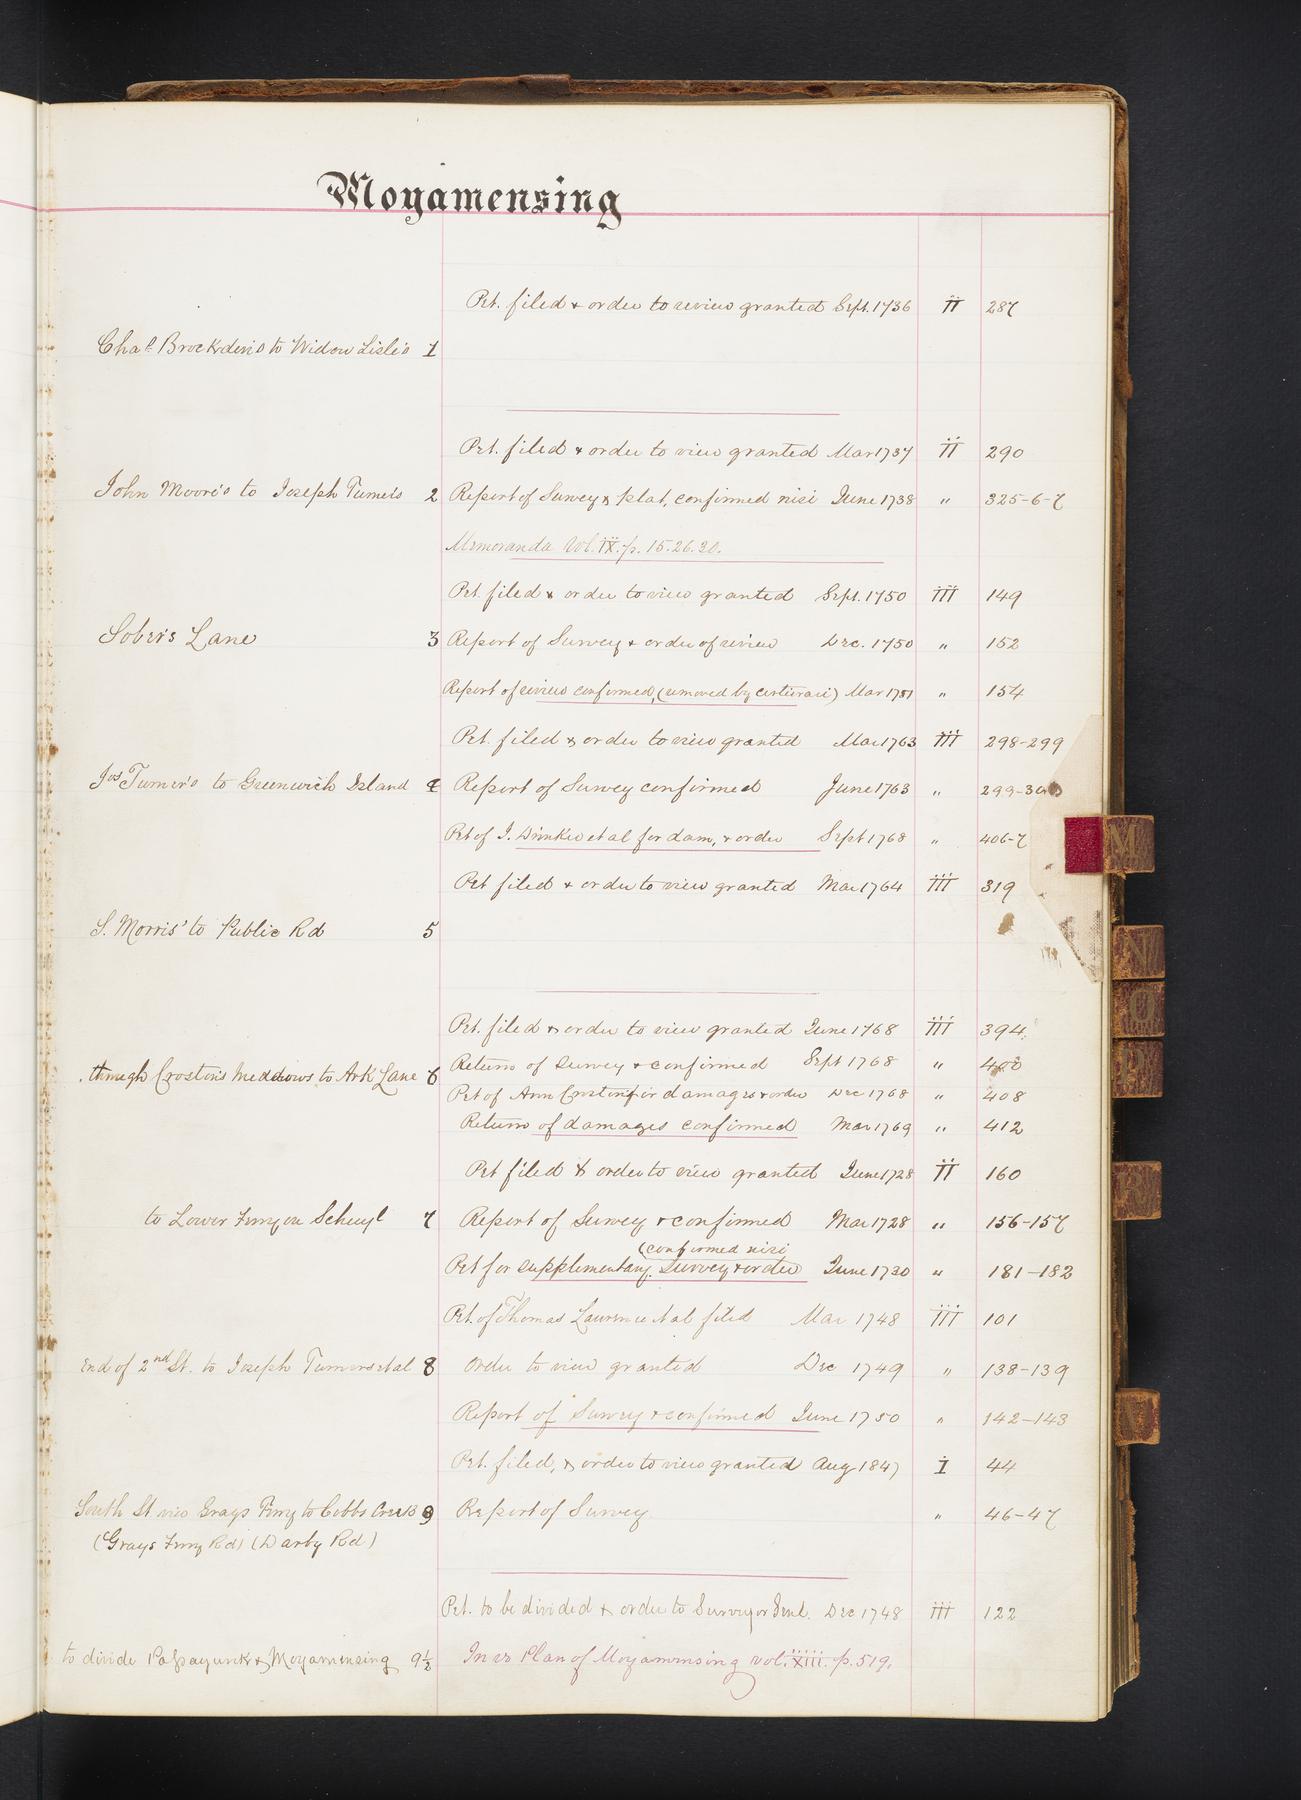 Moyamensing
Pet. filed & order to review granted Sept. 1736 II 287
Chas. Brockden's to Widow Lisle's 1
Pet. filed & order to view granted Mar 1737 II 290
John Moore's to Joseph Turner's 2 Report of Survey & plat, confirmed nisi June 1738 " 325-6-7
Memoranda Vol. IX. p. 15. 26. 30.
Pet. filed & order to view granted Sept. 1750 III 149
Sober's Lane 3 Report of Survey & order of review Dec. 1750 " 152
Report of review confirmed, (removed by certiorari) Mar 1751 " 154
Pet. filed & order to view granted Mar 1763 III 298-299
Jos Turner's to Greenwich Island 4 Report of Survey confirmed June 1763 " 299-300
Pet of J. Drinker et al for dam, & order Sept 1768 " 406-7
Pet filed & order to view granted Mar 1764 III 319
S. Morris' to Public Rd 5
Pet. filed & order to view granted June 1768 III 394
through Croston's meddows to Ark Lane 6 Return of Survey & confirmed Sept 1768 "
Pet of Ann Croston for damages & order Dec 1768 " 408
Return of damages confirmed Mar 1769 " 412
Pet filed & order to view granted June 1728 II 160
to Lower Ferry on Schuyl 7 Report of Survey & confirmed Mar 1728 " 156-157
(confirmed nisi
Pet for supplementary Survey & order June 1730 " 181-182
Pet. of Thomas Laurence et al filed Mar 1748 III 101
End of 2nd St. to Joseph Turners et al 8 order to view granted Dec 1749 " 138-139
Report of Survey & confirmed June 1750 " 142-143
Pet. filed, & order to view granted Aug 1847 I 44
South St view Grays Ferry to Cobbs Creek 9 Report of Survey " 46-47
(Grays Ferry Rd) (Darby Rd)
Pet. to be divided & order to Surveyor Genl. Dec 1748 III 122
to divide Passayunk & Moyamensing 9½ In re Plan of Moyamensing vol. XIII. p. 519.
M
N
O
P
R